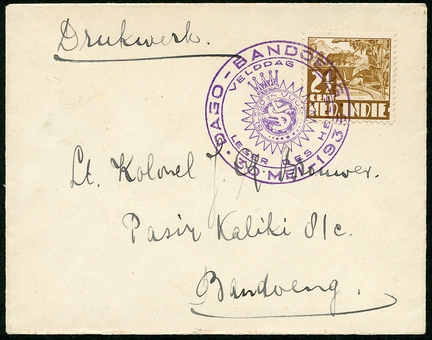 Drukwerk.
DAGO - BANDOENG
VELDDAG
LEGER DES HEILS
30 MEI 1935
2½
CENT
NED. INDIE
Lt. Kolonel J. Brouwer.
Pasir Kaliki 81c.
Bandoeng.